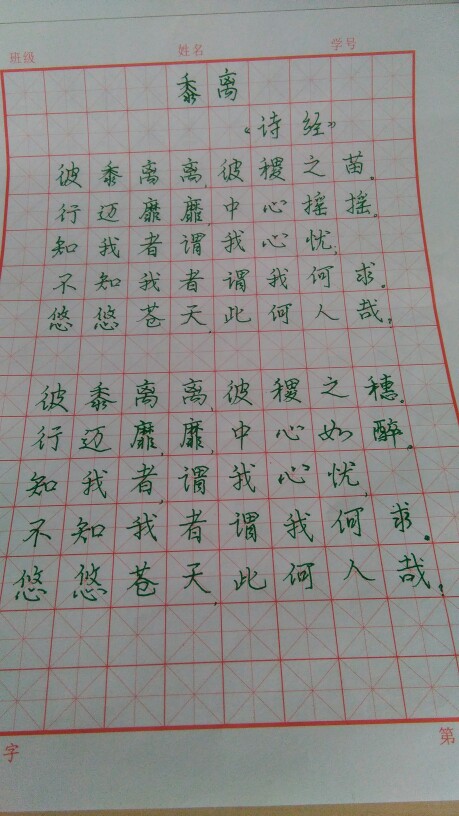 班级 姓名 学号
黍离
《诗经》
彼黍离离,彼稷之苗。
行迈靡靡,中心摇摇。
知我者谓我心忧,
不知我者谓我何求。
悠悠苍天,此何人哉,
彼黍离离,彼稷之穗。
行迈靡,靡,中心如醉。
知我者,谓我心忧,
不知我者谓我何求。
悠悠苍天,此何人哉,
字 第